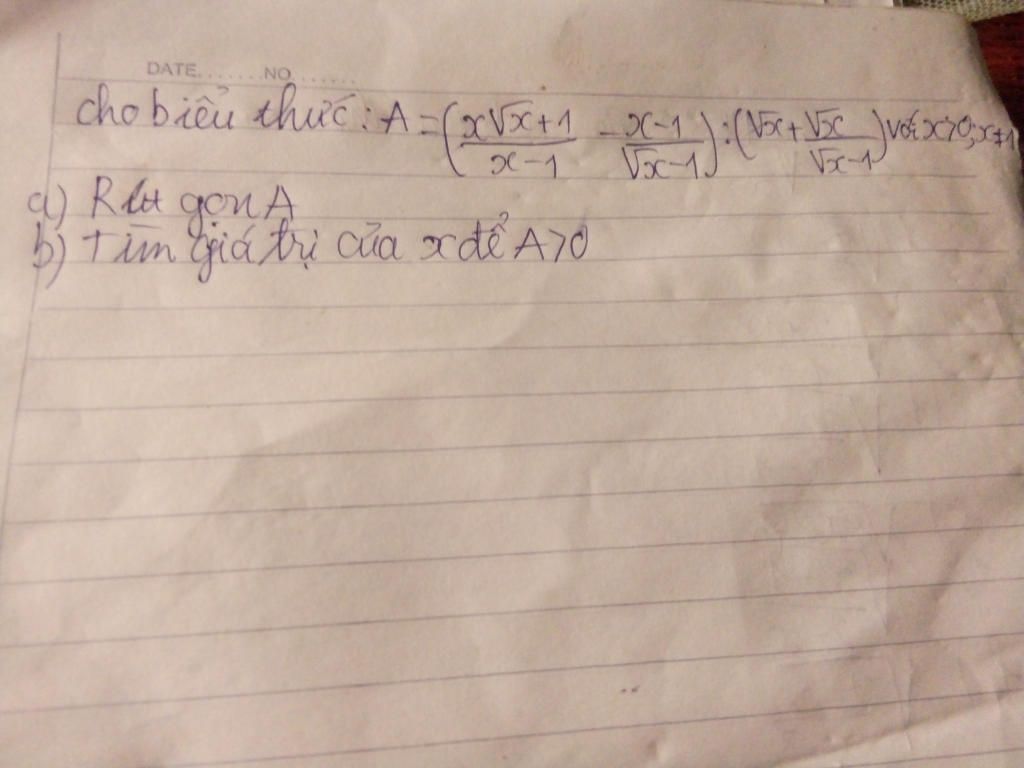 DATE.......NO.......
cho biểu thức: A = (x√x+1/x-1 - x-1/√x-1) : (√x + √x/√x-1) với x>0; x≠1
a) Rút gọn A
b) Tìm giá trị của x để A>0